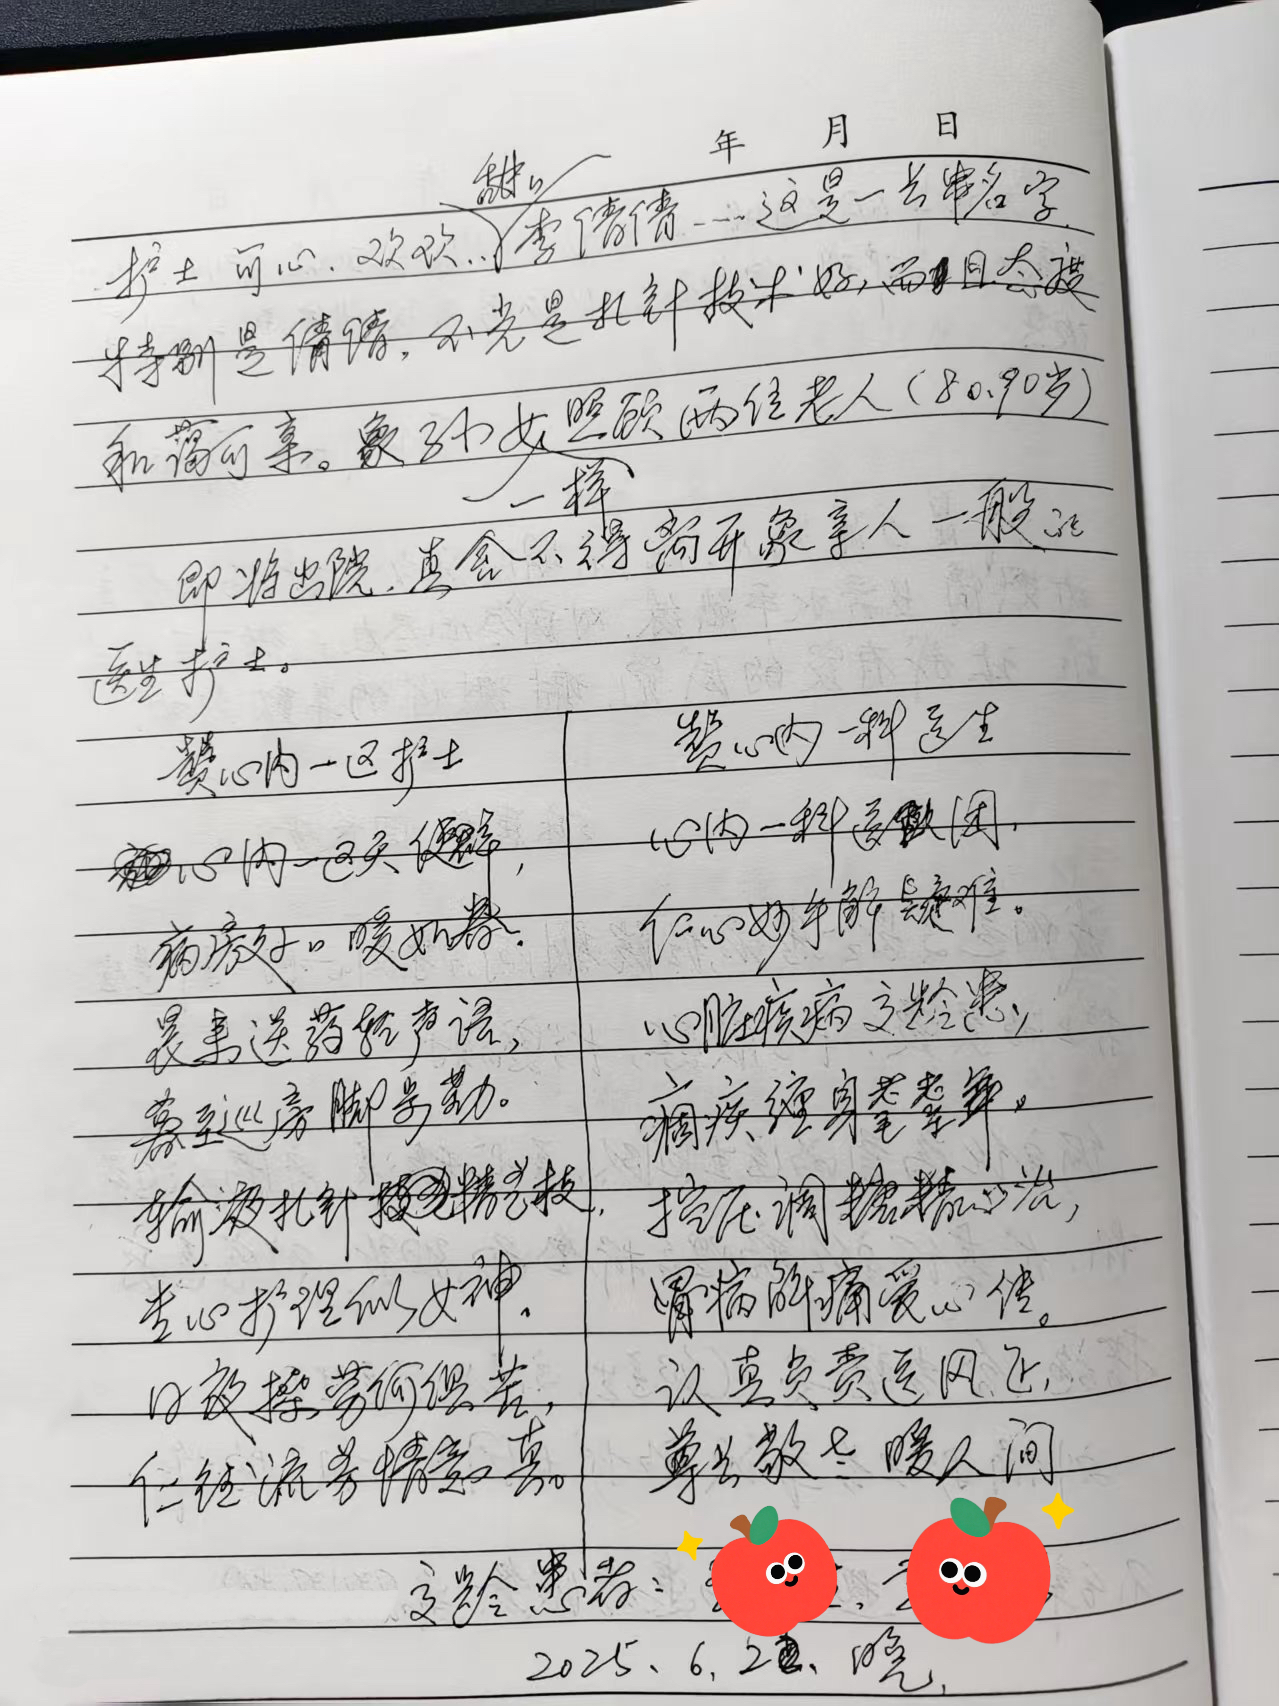 年 月 日
护士可心、欢欢、甜心、李倩倩……这是一长串名字.
特别是倩倩，不光是扎针技术好，而且态度
和蔼可亲。象孙女一样照顾两位老人（80.90岁）
即将出院，真舍不得离开象亲人一般的
医生护士。
赞心内一区护士
心内一区天使群，
病房好暖如春.
晨来送药轻声语，
暮至巡房脚步勤。
输液扎针精艺技，
贵心护理似女神.
日夜操劳何惧苦，
仁德流芳情意真。
赞心内一科医生
心内一科医救困，
仁心妙手解疑难。
心脏疾病高龄患，
痼疾缠身耄耋年。
控压调糖精心治，
胃病解痛爱心传。
认真负责医风正，
尊长敬老暖人间
高龄患者：
2025、6、2 、晚.